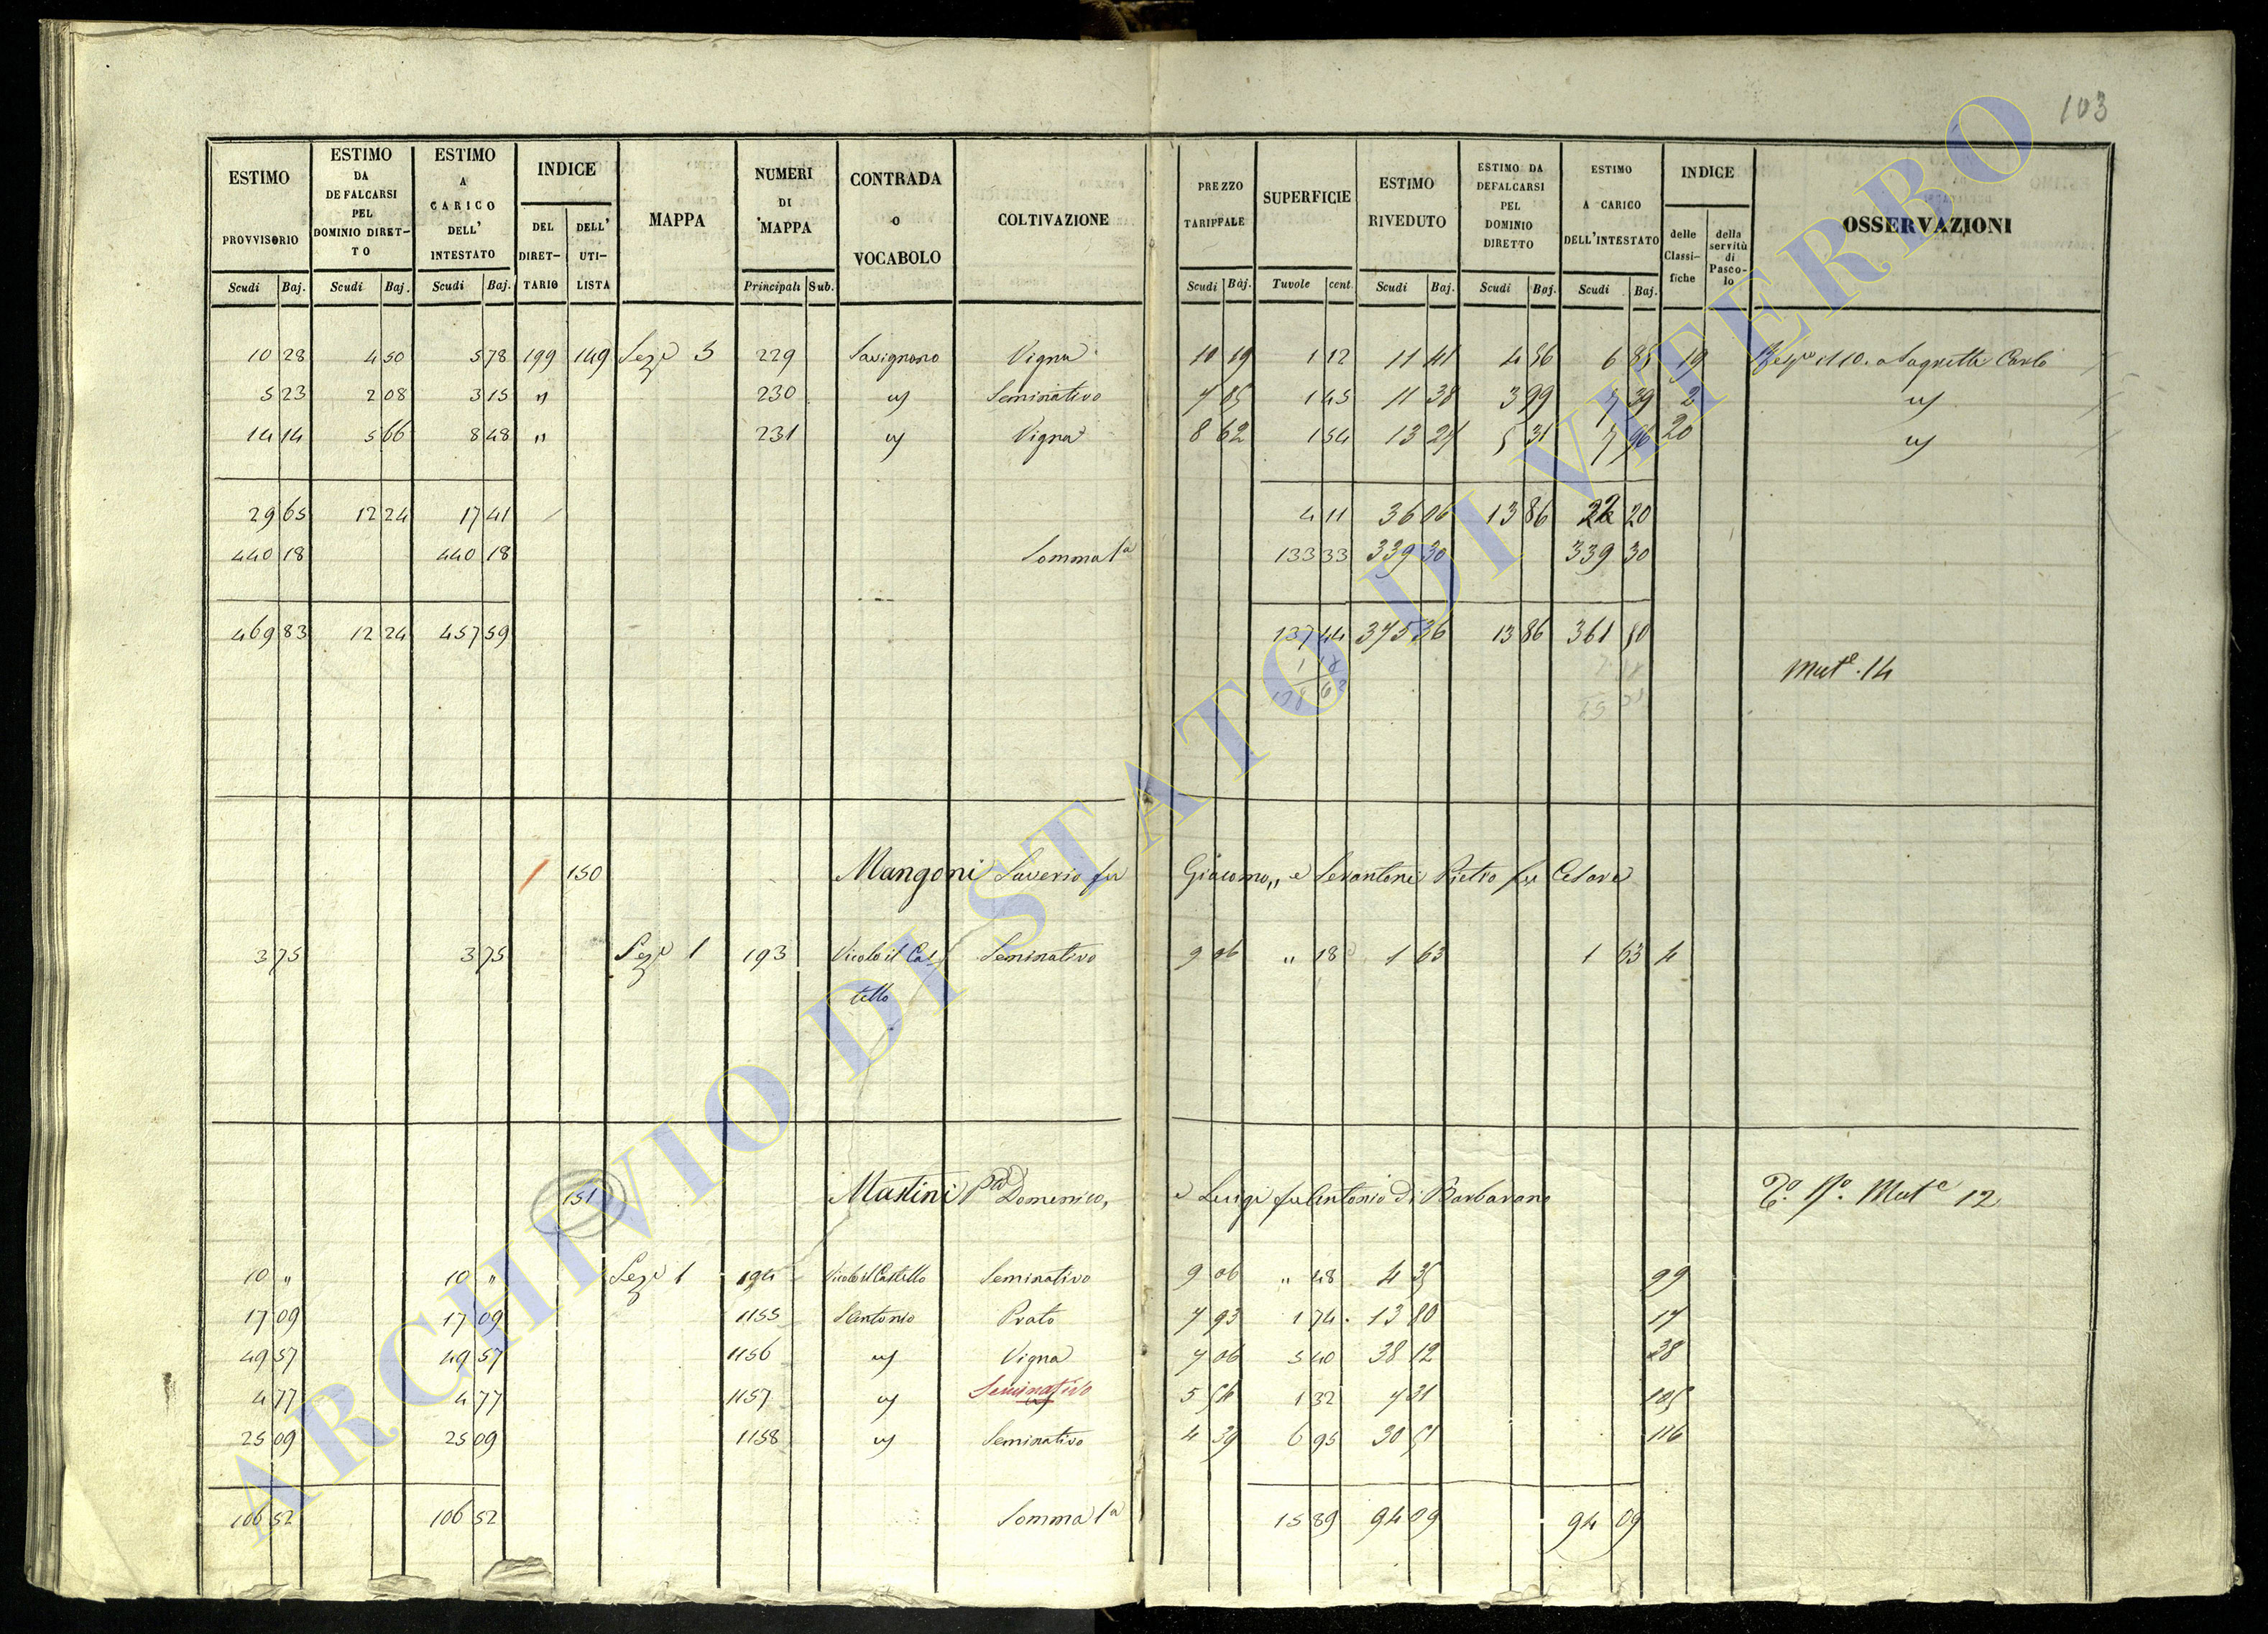 103
ESTIMO PROVVISORIO Scudi Baj.
ESTIMO DA DEFALCARSI PEL DOMINIO DIRET-TO Scudi Baj.
ESTIMO A CARICO DELL' INTESTATO Scudi Baj.
INDICE DEL DIRET-TARIO DELL' UTI-LISTA
MAPPA
NUMERI DI MAPPA Principali Sub.
CONTRADA O VOCABOLO
COLTIVAZIONE
PREZZO TARIFFALE Scudi Baj.
SUPERFICIE Tavole cent.
ESTIMO RIVEDUTO Scudi Baj.
ESTIMO DA DEFALCARSI PEL DOMINIO DIRETTO Scudi Baj.
ESTIMO A CARICO DELL'INTESTATO Scudi Baj.
INDICE delle Classi-fiche della servitù di Pasco-lo
OSSERVAZIONI
10 28 4 50 5 78 199 149 Seze 3 229 Savignano Vigna 10 19 1 12 11 41 4 56 6 85 19 a Sagretti Carlo
5 23 2 08 3 15 " 230 Seminativo 7 85 1 45 11 38 3 99 7 39 2
14 14 5 66 8 48 " 231 Vigna 8 62 1 54 13 27 5 31 7 96 20
29 65 12 24 17 41 4 11 36 06 13 86 22 20
440 18 440 18 Somma 1a 133 33 339 30 339 30
469 83 12 24 457 59 137 44 375 36 13 86 361 50
Mute. 14
150 Mangoni Saverio fu Giacomo,, e Serantoni Pietro fu Cesare
3 75 3 75 Seze 1 193 Vicolo il Cas- Seminativo 9 06 " 18 1 63 1 63 4
tello
151 Mastini Domenico, e Luigi fu Antonio di Barbarano Mute 12
10 " 10 " Seze 1 194 Vicolo il Castello Seminativo 9 06 " 48 4 35 99
17 09 17 09 1155 S Antonio Prato 7 93 1 74 13 80 17
49 57 49 57 1156 Vigna 7 06 5 40 38 12 28
4 77 4 77 1157 Seminativo 5 54 1 32 7 31 105
25 09 25 09 1158 Seminativo 4 39 6 95 30 51 116
106 52 106 52 Somma 1a 15 89 94 09 94 09
ARCHIVIO DI STATO DI VITERBO